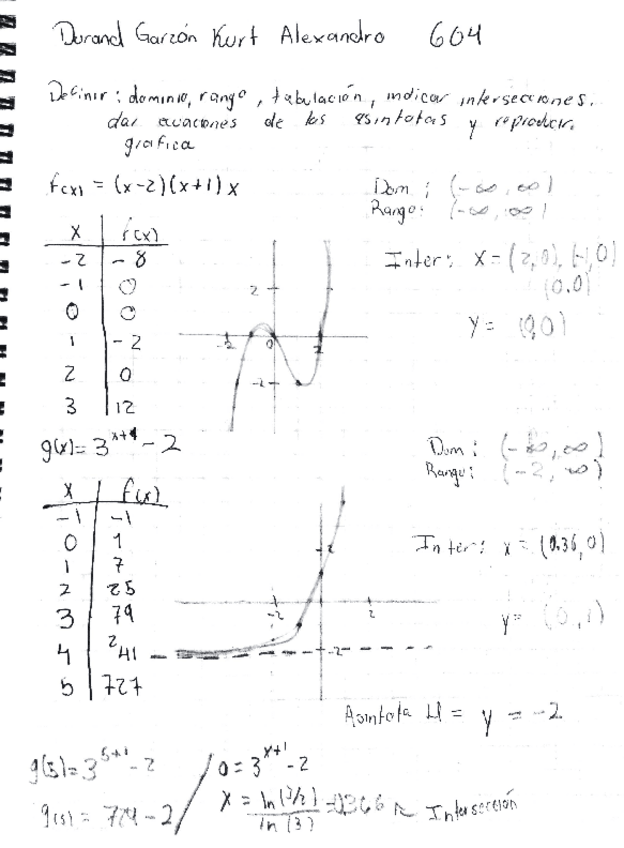 Durand Garzón Kurt Alexandro 604
Definir: dominio, rango, tabulación, indicar intersecciones.
dar ecuaciones de las asintotas y reproducir
grafica
f(x) = (x-2)(x+1)x
Dom: (-∞, ∞)
Rango: (-∞, ∞)
x f(x)
-2 -8
-1 0
0 0
1 -2
2 0
3 12
Inter: x = (2,0), (-1,0)
(0.0)
y = (0,0)
2
-2 0 2
-2
g(x) = 3^x+1 - 2
Dom: (-∞, ∞)
Rango: (-2, ∞)
x f(x)
-1 -1
0 1
1 7
2 25
3 79
4 241
5 727
Inter: x = (0.36,0)
y = (0,1)
2
-2 2
-2
Asintota H = y = -2
g(5) = 3^5+1 - 2
g(5) = 729 - 2
0 = 3^x+1 - 2
x = ln(3/2) / ln(3)
Intersección